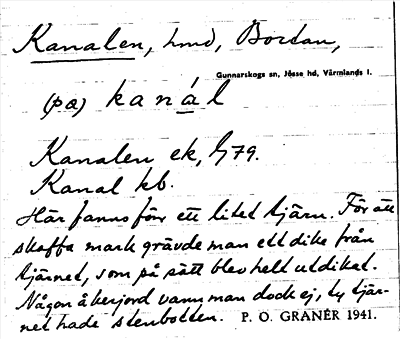 Kanalen, hmd, Bordan,
Gunnarskogs sn, Jösse hd, Värmlands l.
(pa) kanál
Kanalen ek, G79.
Kanal kb.
Här fanns förr ett litet tjärn. För att
skaffa mark grävde man ett dike från
tjärnet, som på sätt blev helt utdikat.
Någon åkerjord vann man dock ej, ty tjär-
net hade stenbotten. P. O. GRANÉR 1941.